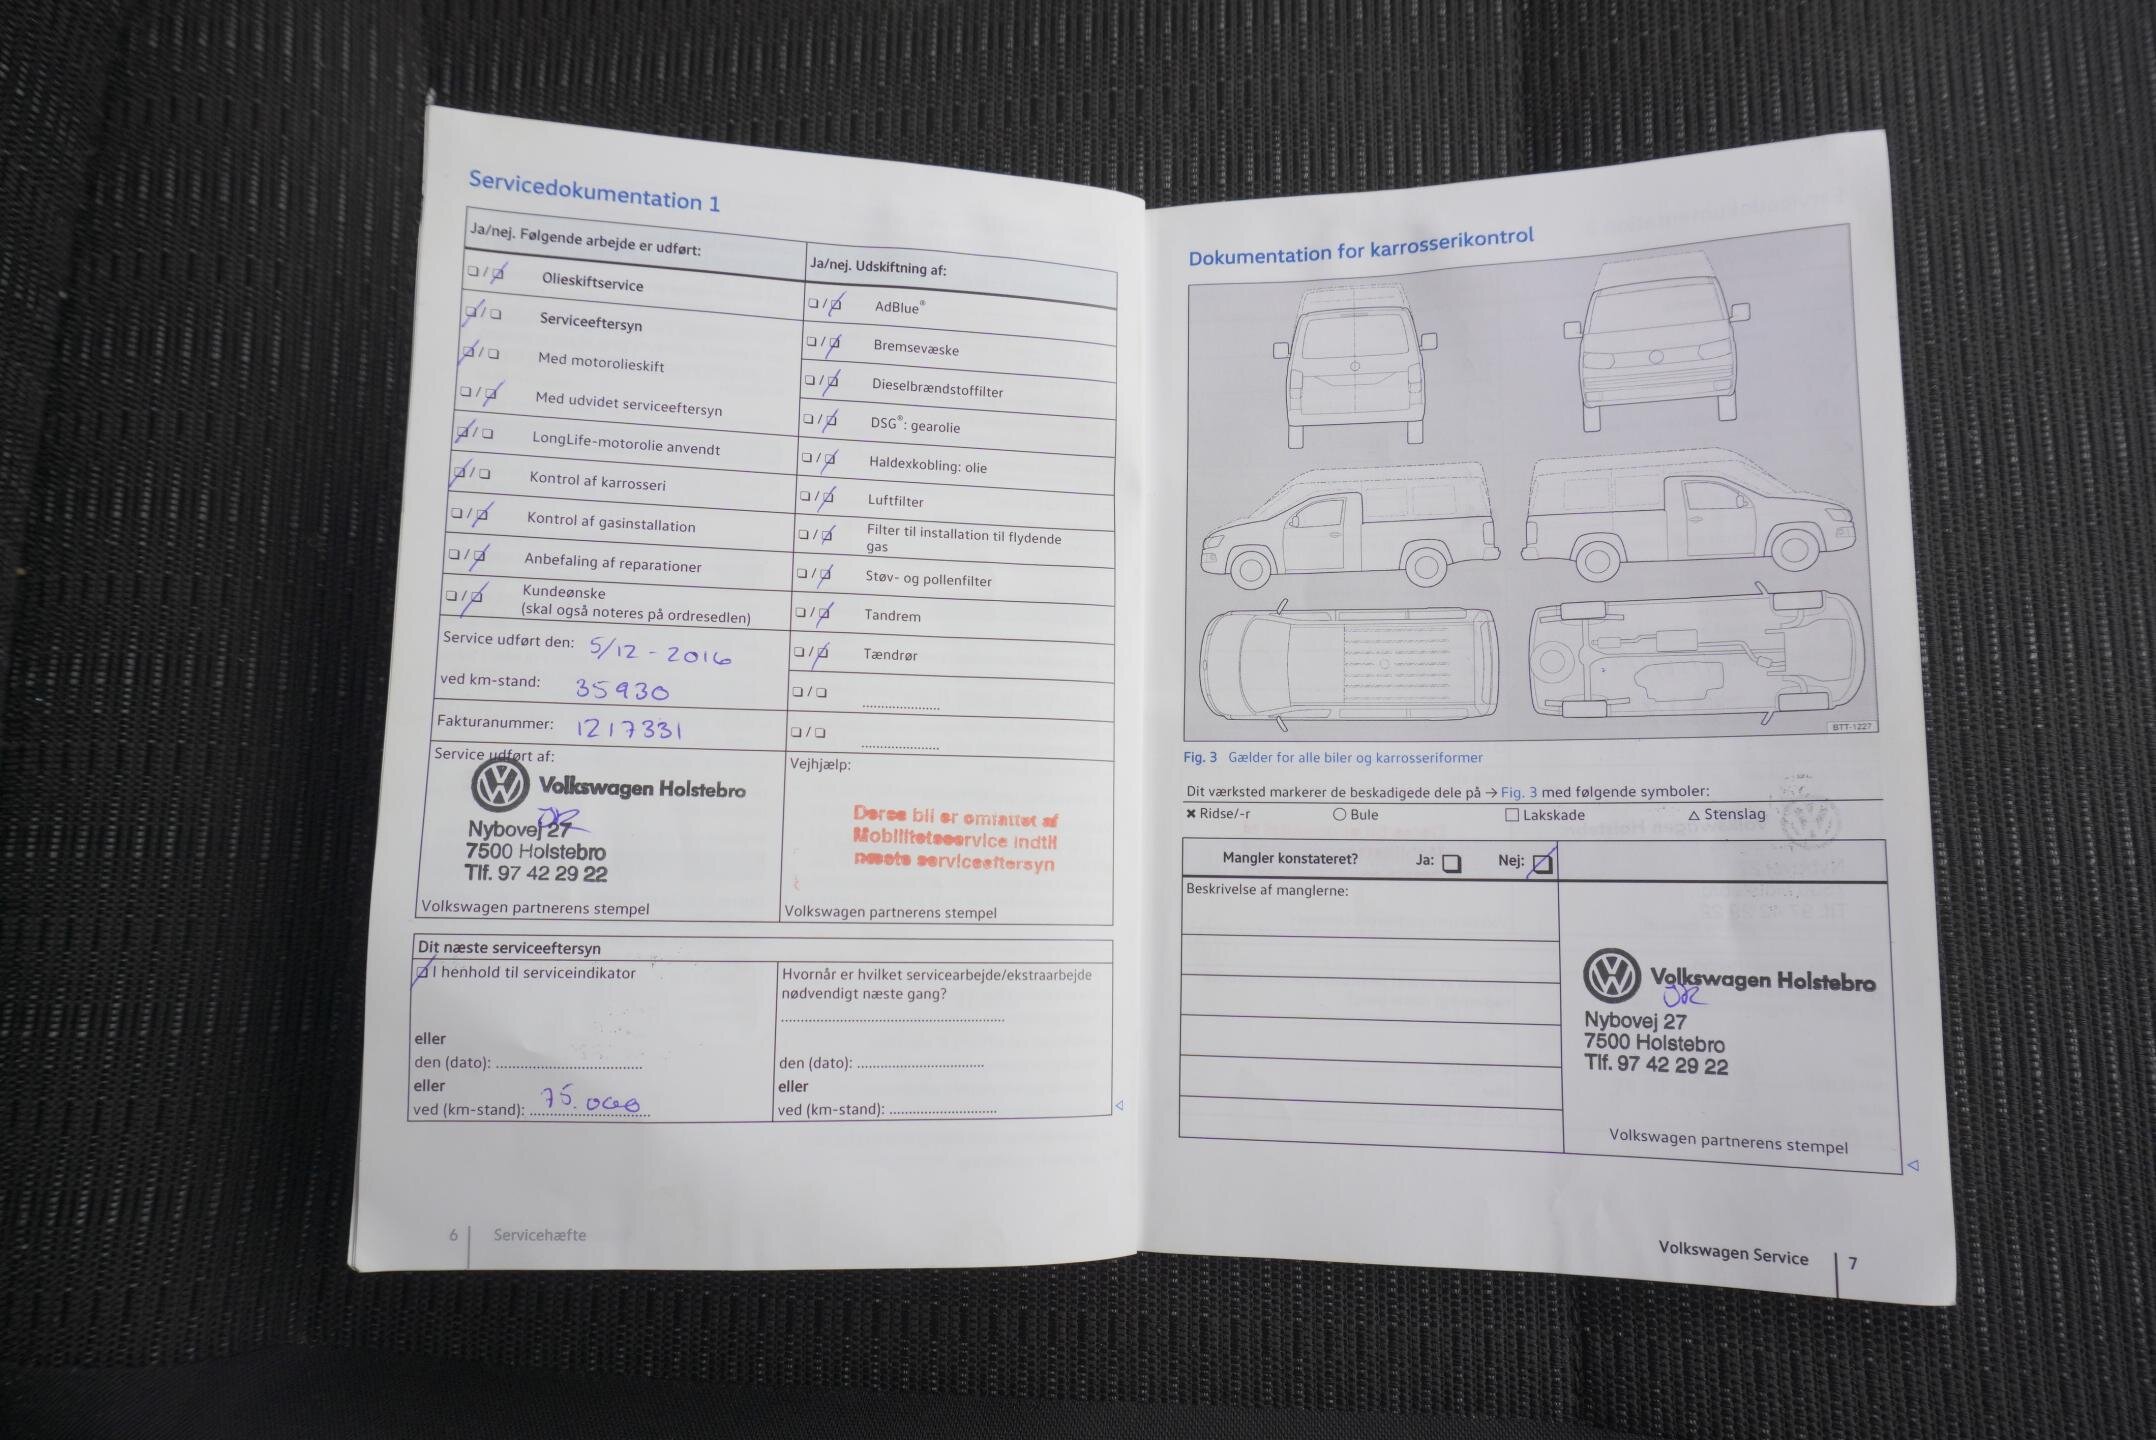 Servicedokumentation 1
Ja/nej. Følgende arbejde er udført:
Olieskiftservice
Serviceeftersyn
Med motorolieskift
Med udvidet serviceeftersyn
LongLife-motorolie anvendt
Kontrol af karrosseri
Kontrol af gasinstallation
Anbefaling af reparationer
Kundeønske
(skal også noteres på ordresedlen)
Service udført den: 5/12 - 2016
ved km-stand: 35930
Fakturanummer: 1217331
Service udført af:
Volkswagen Holstebro
Nybovej 27
7500 Holstebro
Tlf. 97 42 29 22
Volkswagen partnerens stempel
Ja/nej. Udskiftning af:
AdBlue®
Bremsevæske
Dieselbrændstoffilter
DSG®: gearolie
Haldexkobling: olie
Luftfilter
Filter til installation til flydende
gas
Støv- og pollenfilter
Tandrem
Tændrør
Vejhjælp:
Deres bil er omfattet af
Mobilitetsservice indtil
næste serviceeftersyn
Volkswagen partnerens stempel
Dit næste serviceeftersyn
I henhold til serviceindikator
eller
den (dato):
eller
ved (km-stand): 75.000
Hvornår er hvilket servicearbejde/ekstraarbejde
nødvendigt næste gang?
den (dato):
eller
ved (km-stand):
6 Servicehæfte
Dokumentation for karrosserikontrol
BTT-1227
Fig. 3 Gælder for alle biler og karrosseriformer
Dit værksted markerer de beskadigede dele på → Fig. 3 med følgende symboler:
✖ Ridse/-r ○ Bule □ Lakskade △ Stenslag
Mangler konstateret? Ja: Nej:
Beskrivelse af manglerne:
Volkswagen Holstebro
Nybovej 27
7500 Holstebro
Tlf. 97 42 29 22
Volkswagen partnerens stempel
Volkswagen Service 7